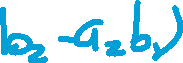 b₂ - a₂b₁)